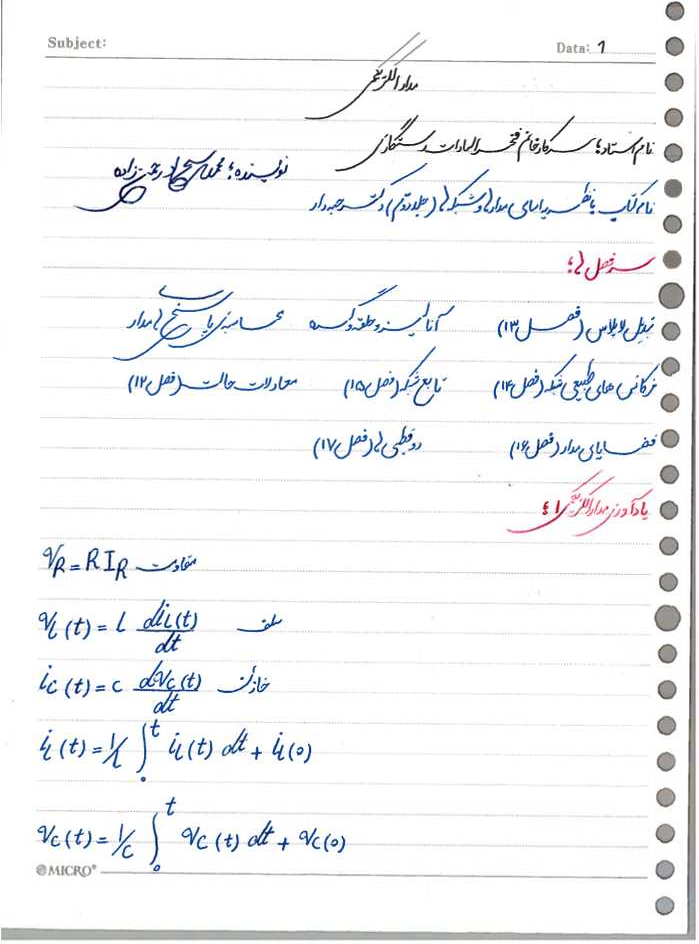 Subject:
Data: 1
مدار الکتریکی
نام استاد: سرکار خانم فخرالسادات رستگاری
نویسنده: محمد
نام کتاب: نظریه اساسی مدارها و شبکه‌ها (جلد دوم) دکتر جبه‌دار
سرفصل‌ها:
تبدیل لاپلاس (فصل ۱۳) آنالیز مدار
فرکانس‌های طبیعی شبکه (فصل ۱۴) توابع شبکه (فصل ۱۵) معادلات حالت (فصل ۱۲)
قضایای مدار (فصل ۱۶) دوقطبی‌ها (فصل ۱۷)
یادآوری مدار الکتریکی ۱:
V_R = R I_R مقاومت
V_L(t) = L di_L(t)/dt سلف
i_C(t) = C dV_C(t)/dt خازن
i_L(t) = 1/L ∫₀ᵗ i_L(t) dt + i_L(0)
V_C(t) = 1/C ∫₀ᵗ V_C(t) dt + V_C(0)
MICRO®